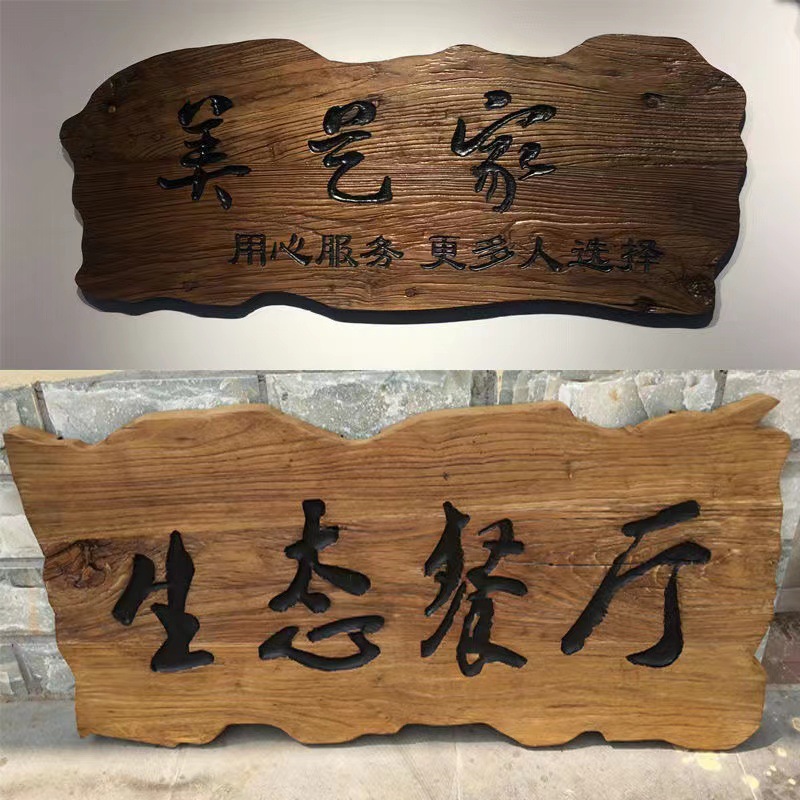 美艺家
用心服务 更多人选择
生态餐厅